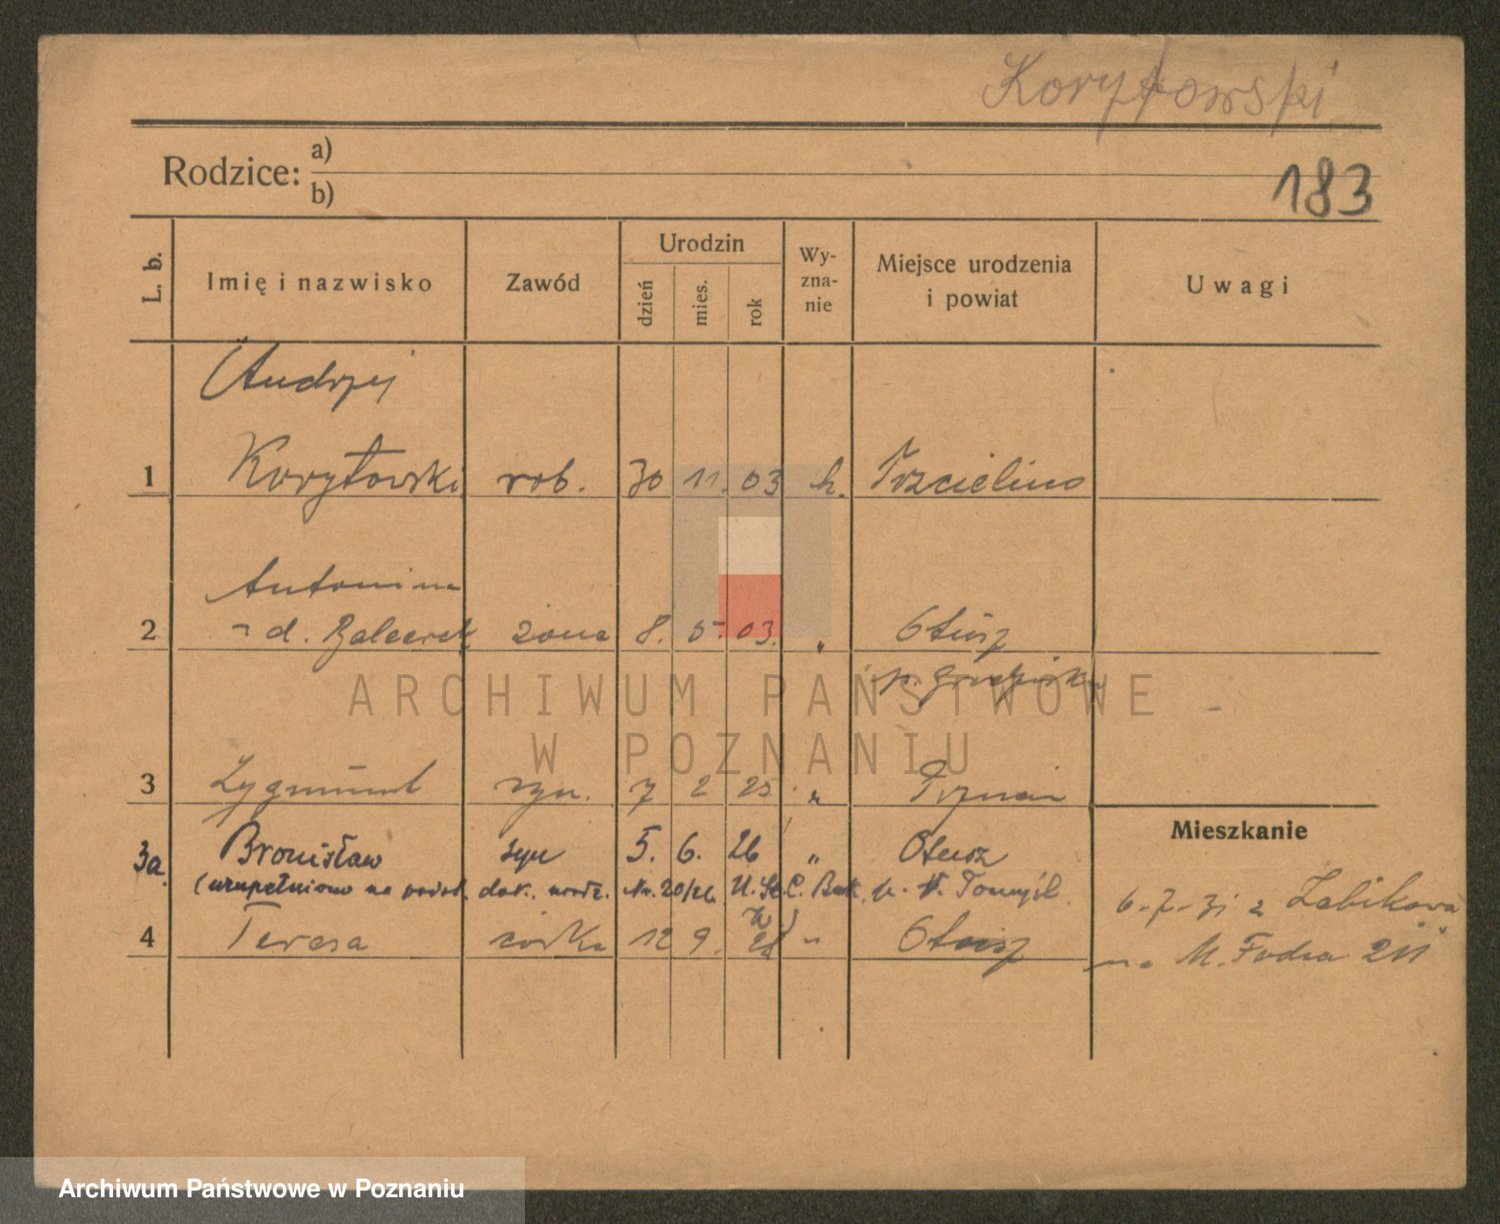 Korytowski
Rodzice: a)
b)
183
L. b.
Imię i nazwisko
Zawód
Urodzin
dzień
mies.
rok
Wy-
zna-
nie
Miejsce urodzenia
i powiat
Uwagi
Andrzej
1 Korytowski rob. 30 11. 03 k. Trzcielino
Antonina
2 z d. żona 8. 5. 03. " Otusz
p. grodziski
3 Zygmunt syn. 7 2 25 " Poznań
Mieszkanie
3a. Bronisław syn 5. 6. 26 " Otusz
(uzupełniono na podst. dok. urodz. Nr. 20/26 U. St. C. Buk p. N. Tomyśl.
6-7-31 z Żabikowa
4 Teresa córka 12 9. 28 " Otusz
na M. Focha
ARCHIWUM PAŃSTWOWE
W POZNANIU
Archiwum Państwowe w Poznaniu